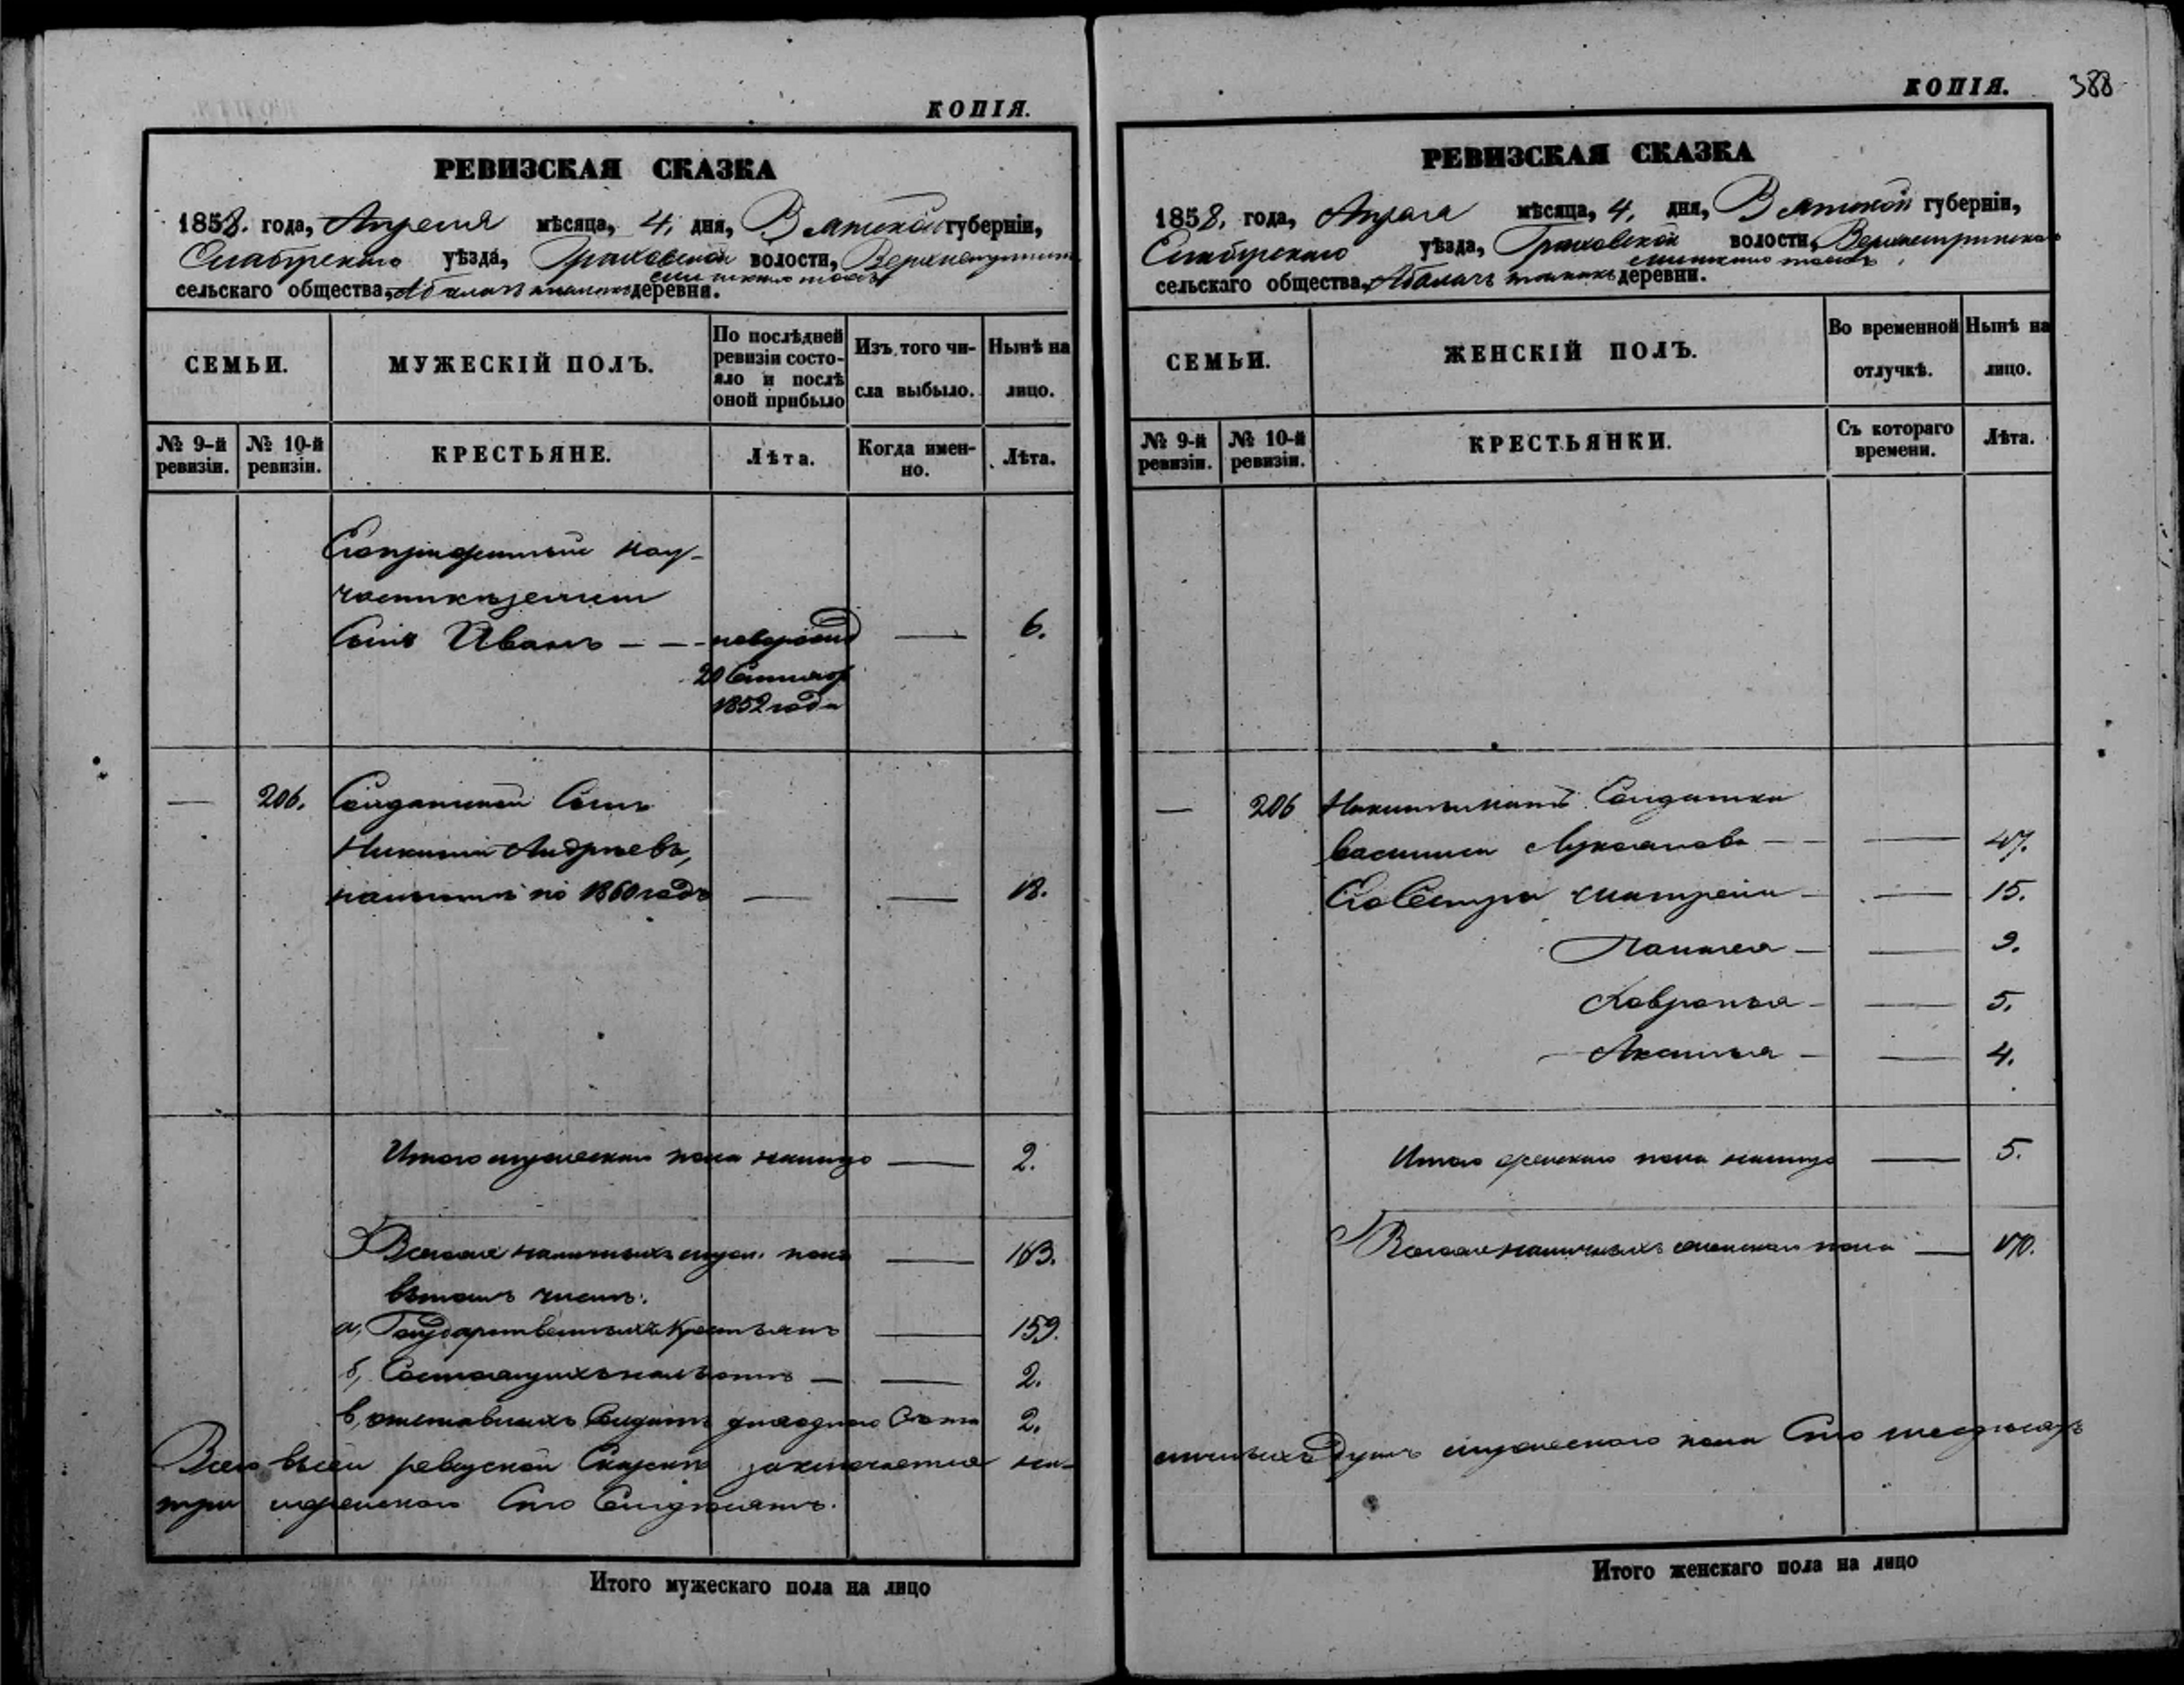 КОПІЯ.
РЕВИЗСКАЯ СКАЗКА
1858. года, Апреля мѣсяца, 4. дня, Вятской губерніи,
уѣзда, Граховской волости,
сельскаго общества, деревни.
СЕМЬИ.
МУЖЕСКІЙ ПОЛЪ.
По послѣдней ревизіи состо-
яло и послѣ оной прибыло
Изъ того чи-
сла выбыло.
Нынѣ на
лицо.
№ 9-й ревизіи.
№ 10-й ревизіи.
КРЕСТЬЯНЕ.
Лѣта.
Когда имен-
но.
Лѣта.
Сынъ Иванъ — — новорожд — 6.
1852 года
— 206. Солдатской Сынъ
Никита Андреевъ,
по 1860 годъ — — 18.
Итого мужескаго пола налицо — 2.
Всего наличныхъ муж. пола — 163.
въ томъ числѣ:
а, Государственныхъ крестьянъ — 159.
б, Состоящихъ на льготѣ — — 2.
в, отставныхъ Солдатъ 2.
Всего въ сей ревизской Сказкѣ заключается на-
три женскаго Сто Семдесятъ.
Итого мужескаго пола на лицо
КОПІЯ.
388
РЕВИЗСКАЯ СКАЗКА
1858. года, Апреля мѣсяца, 4. дня, Вятской губерніи,
уѣзда, Граховской волости,
сельскаго общества, деревни.
СЕМЬИ.
ЖЕНСКІЙ ПОЛЪ.
Во временной
отлучкѣ.
Нынѣ на
лицо.
№ 9-й ревизіи.
№ 10-й ревизіи.
КРЕСТЬЯНКИ.
Съ котораго времени.
Лѣта.
— 206 Солдатка
— — 47.
Его Сестра Матрена — — 15.
— — 9.
Хавронья — — 5.
Аксинья — — 4.
Итого женскаго пола налицо — 5.
Всего наличныхъ женскаго пола — 170.
личныхъ душъ мужескаго пола Сто шесдесятъ
Итого женскаго пола на лицо